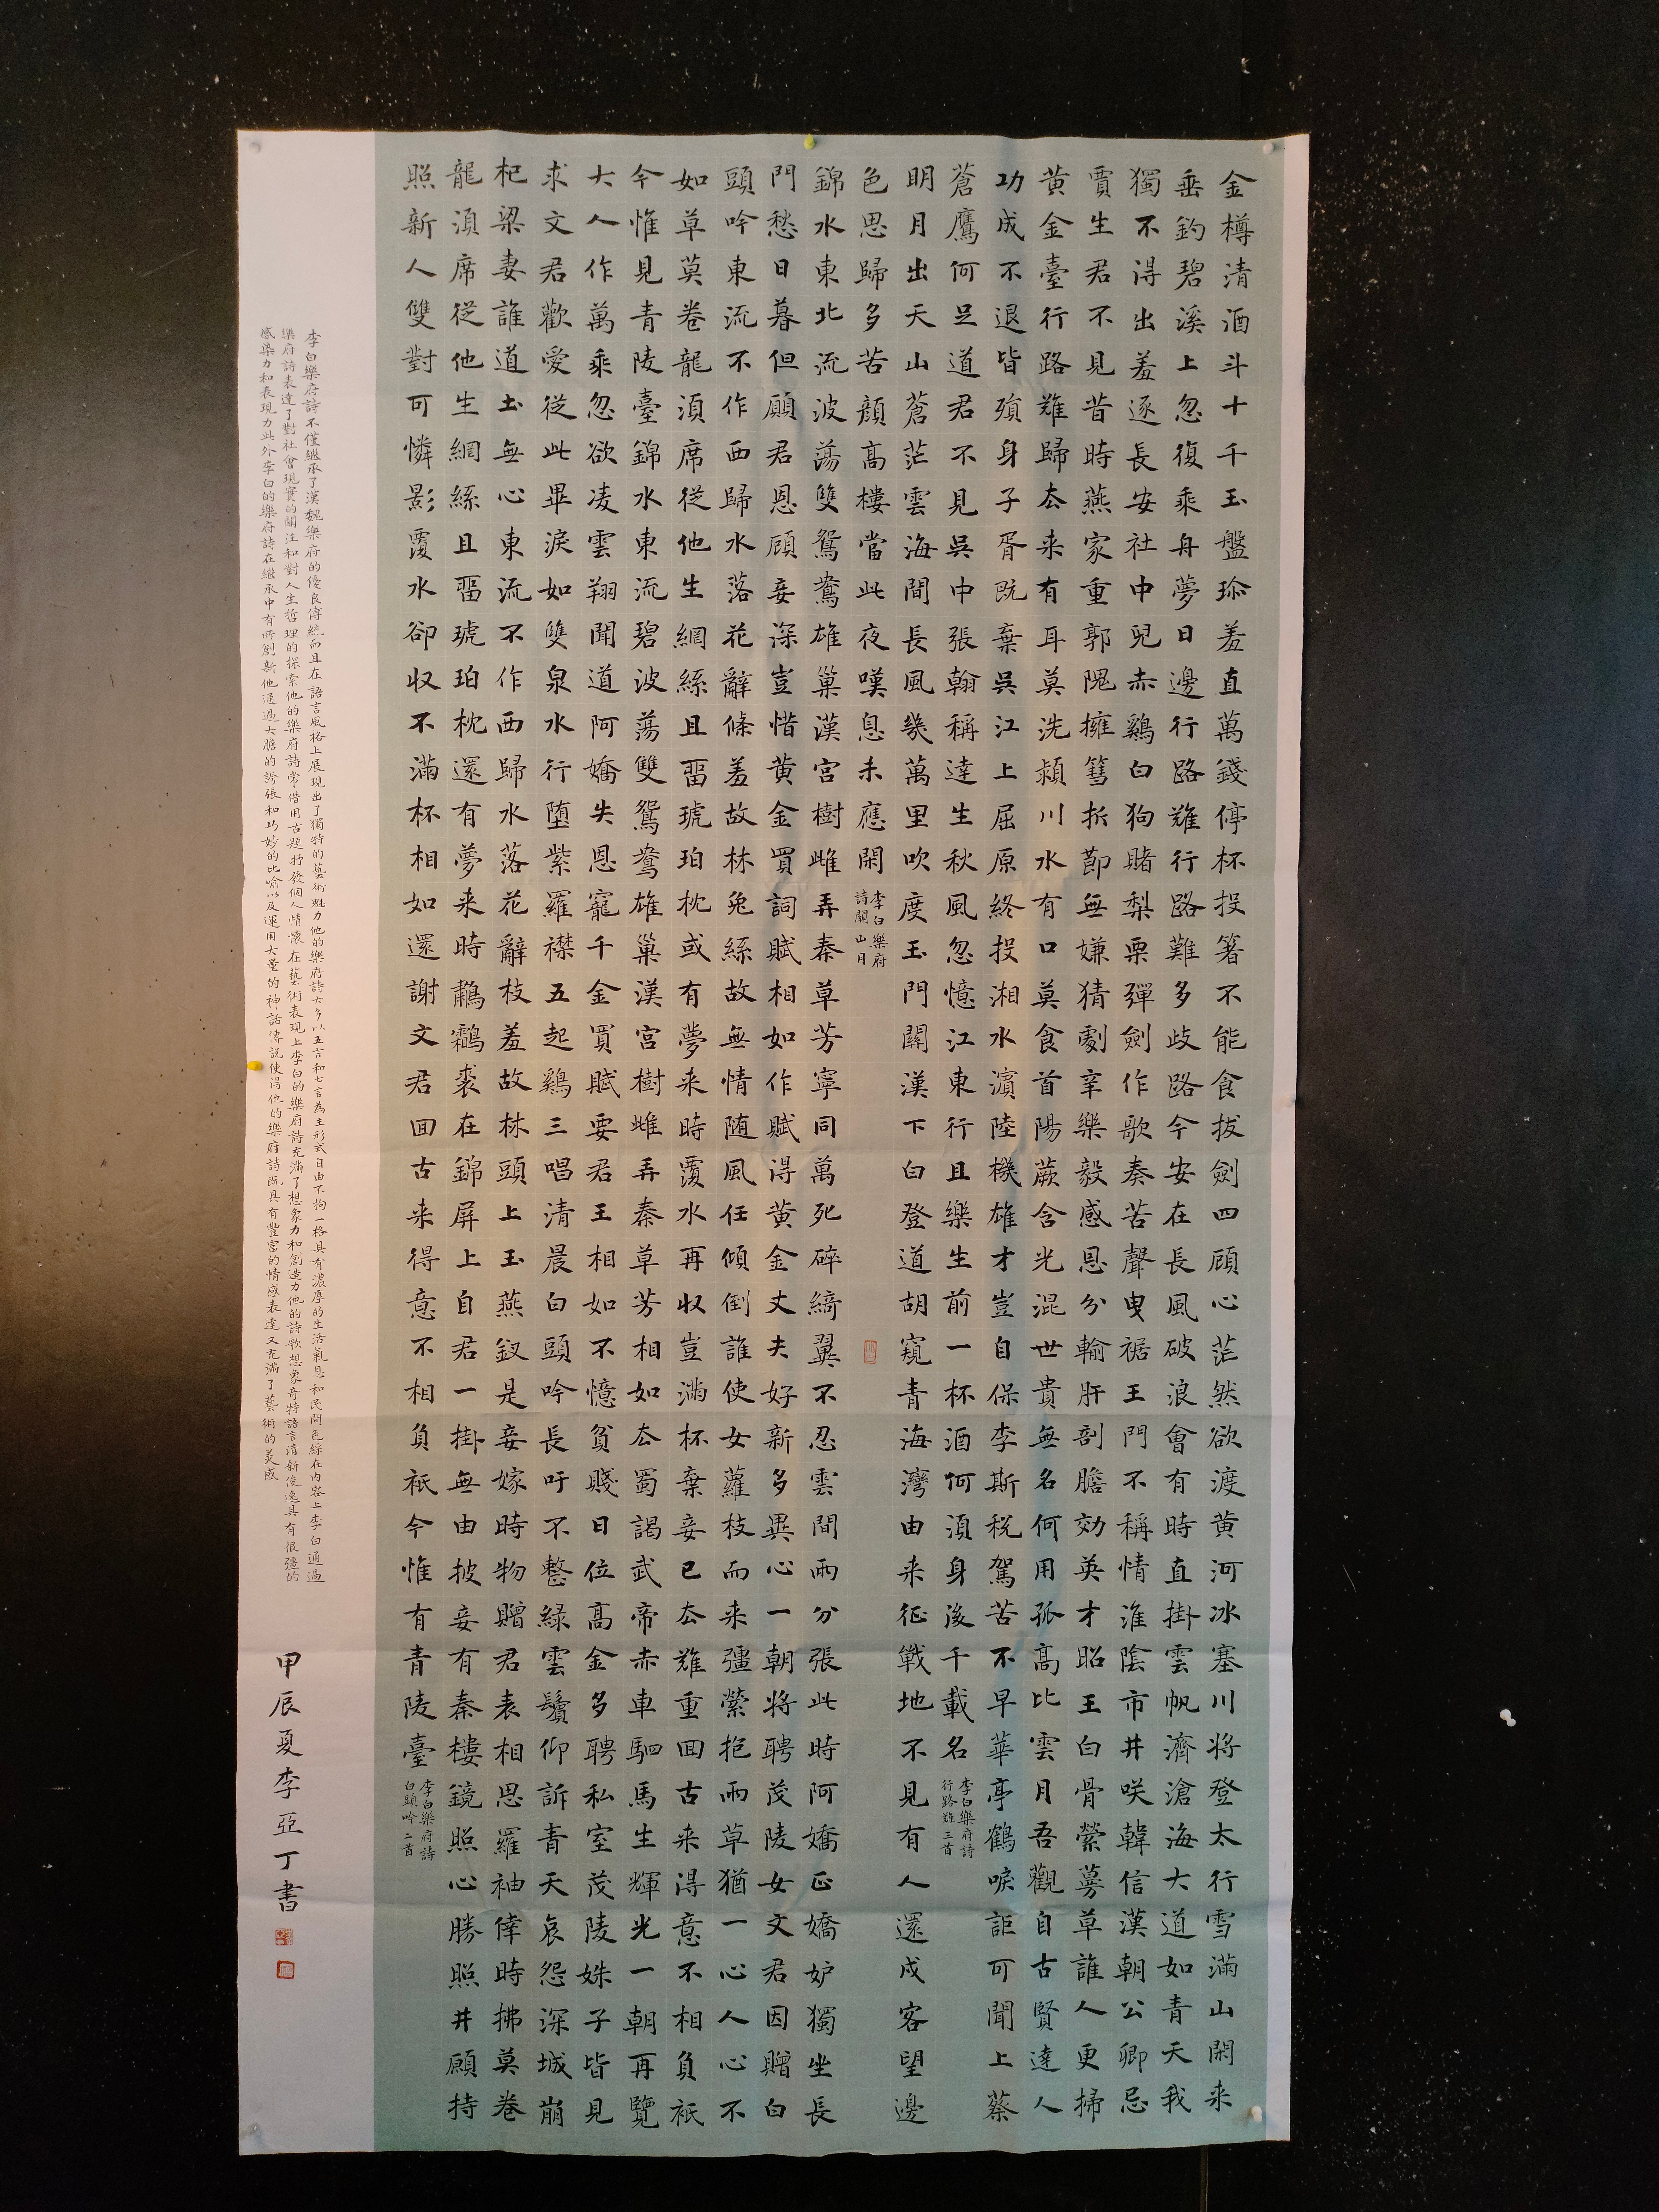 金樽清酒斗十千玉盤珎羞直萬錢停杯投箸不能食拔劍四顧心茫然欲渡黄河冰塞川將登太行雪滿山閑来
垂釣碧溪上忽復乘舟夢日邊行路難行路難多歧路今安在長風破浪會有時直掛雲帆濟滄海大道如青天我
獨不得出羞逐長安社中兒赤鷄白狗賭梨栗彈劍作歌奏苦聲曳裾王門不稱情淮陰市井咲韓信漢朝公卿忌
賈生君不見昔時燕家重郭隗擁篲折節無嫌猜劇辛樂毅感恩分輸肝剖膽効英才昭王白骨縈蔓草誰人更掃
黄金臺行路難歸去来有耳莫洗潁川水有口莫食首陽蕨含光混世貴無名何用孤高比雲月吾觀自古賢達人
功成不退皆殞身子胥既棄吳江上屈原終投湘水濱陸機雄才豈自保李斯税駕苦不早華亭鶴唳詎可聞上蔡
蒼鷹何足道君不見吳中張翰稱達生秋風忽憶江東行且樂生前一杯酒何湏身後千載名
李白樂府詩
行路難三首
明月出天山蒼茫雲海間長風幾萬里吹度玉門關漢下白登道胡窺青海灣由来征戰地不見有人還戍客望邊
色思歸多苦顔高樓當此夜嘆息未應閑
李白樂府
詩關山月
錦水東北流波蕩雙鴛鴦雄巢漢宮樹雌弄秦草芳寧同萬死碎綺翼不忍雲間兩分張此時阿嬌正嬌妒獨坐長
門愁日暮但願君恩顧妾深豈惜黄金買詞賦相如作賦得黄金丈夫好新多異心一朝將聘茂陵女文君因贈白
頭吟東流不作西歸水落花辭條羞故林兔絲故無情随風任傾倒誰使女蘿枝而来彊縈抱兩草猶一心人心不
如草莫卷龍湏席從他生網絲且留琥珀枕或有夢来時覆水再收豈滿杯棄妾已去難重回古来得意不相負祇
今惟見青陵臺錦水東流碧波蕩雙鴛鴦雄巢漢宮樹雌弄秦草芳相如去蜀謁武帝赤車駟馬生輝光一朝再覽
大人作萬乘忽欲凌雲翔聞道阿嬌失恩寵千金買賦要君王相如不憶貧賤日位高金多聘私室茂陵姝子皆見
求文君歡愛從此畢淚如雙泉水行堕紫羅襟五起鷄三唱清晨白頭吟長吁不整緑雲鬢仰訴青天哀怨深城崩
杞梁妻誰道土無心東流不作西歸水落花辭枝羞故林頭上玉燕釵是妾嫁時物贈君表相思羅袖倖時拂莫卷
龍湏席從他生網絲且留琥珀枕還有夢来時鷫鸘裘在錦屏上自君一掛無由披妾有秦樓鏡照心勝照井願持
照新人雙對可憐影覆水卻收不滿杯相如還謝文君回古来得意不相負祇今惟有青陵臺
李白樂府詩
白頭吟二首
李白樂府詩不僅繼承了漢魏樂府的優良傳統而且在語言風格上展現出了獨特的藝術魅力他的樂府詩大多以五言和七言為主形式自由不拘一格具有濃厚的生活氣息和民間色綵在内容上李白通過
樂府詩表達了對社會現實的關注和對人生哲理的探索他的樂府詩常借用古題抒發個人情懷在藝術表現上李白的樂府詩充滿了想象力和創造力他的詩歌想象奇特語言清新俊逸具有很彊的
感染力和表現力此外李白的樂府詩在繼承中有所創新他通過大膽的誇張和巧妙的比喻以及運用大量的神話傳説使得他的樂府詩既具有豐富的情感表達又充滿了藝術的美感
甲辰夏李亞丁書